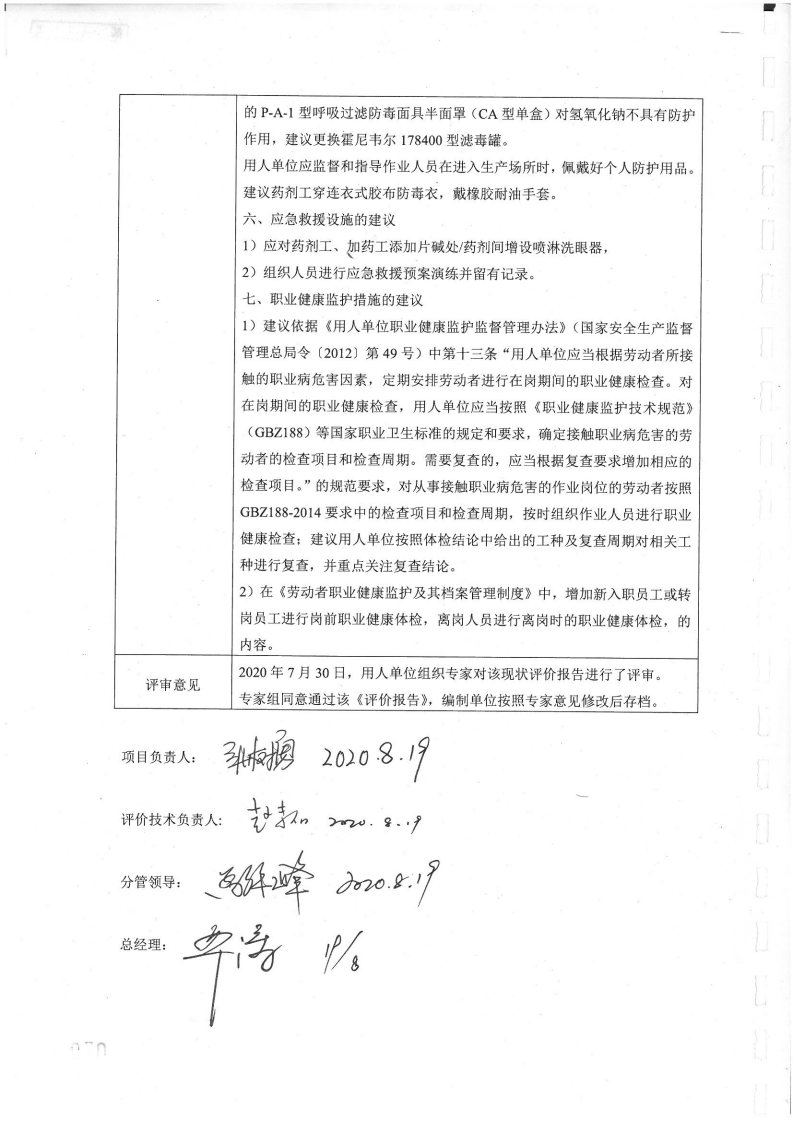 的 P-A-1 型呼吸过滤防毒面具半面罩（CA 型单盒）对氢氧化钠不具有防护
作用，建议更换霍尼韦尔 178400 型滤毒罐。
用人单位应监督和指导作业人员在进入生产场所时，佩戴好个人防护用品。
建议药剂工穿连衣式胶布防毒衣，戴橡胶耐油手套。
六、应急救援设施的建议
1）应对药剂工、加药工添加片碱处/药剂间增设喷淋洗眼器，
2）组织人员进行应急救援预案演练并留有记录。
七、职业健康监护措施的建议
1）建议依据《用人单位职业健康监护监督管理办法》（国家安全生产监督
管理总局令〔2012〕第 49 号）中第十三条“用人单位应当根据劳动者所接
触的职业病危害因素，定期安排劳动者进行在岗期间的职业健康检查。对
在岗期间的职业健康检查，用人单位应当按照《职业健康监护技术规范》
（GBZ188）等国家职业卫生标准的规定和要求，确定接触职业病危害的劳
动者的检查项目和检查周期。需要复查的，应当根据复查要求增加相应的
检查项目。”的规范要求，对从事接触职业病危害的作业岗位的劳动者按照
GBZ188-2014 要求中的检查项目和检查周期，按时组织作业人员进行职业
健康检查；建议用人单位按照体检结论中给出的工种及复查周期对相关工
种进行复查，并重点关注复查结论。
2）在《劳动者职业健康监护及其档案管理制度》中，增加新入职员工或转
岗员工进行岗前职业健康体检，离岗人员进行离岗时的职业健康体检，的
内容。
评审意见
2020 年 7 月 30 日，用人单位组织专家对该现状评价报告进行了评审。
专家组同意通过该《评价报告》，编制单位按照专家意见修改后存档。
项目负责人： 2020.8.19
评价技术负责人： 2020.8.19
分管领导： 2020.8.19
总经理： 19/8